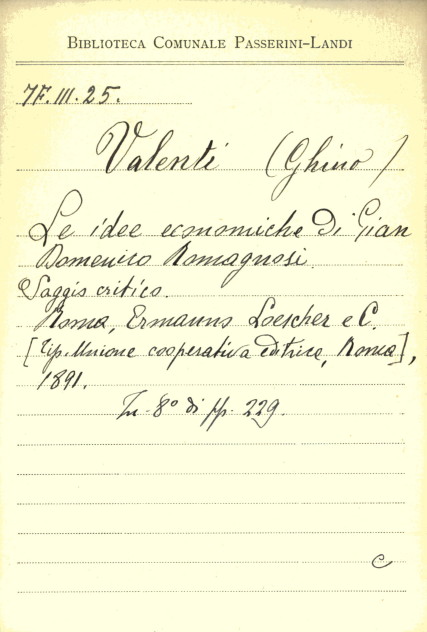 BIBLIOTECA COMUNALE PASSERINI-LANDI
7F.III.25.
Valenti (Ghino)
Le idee economiche di Gian
Domenico Romagnosi.
Saggio critico.
Roma, Ermanno Loescher e C.
[Tip. Unione cooperativa editrice, Roma],
1891.
In-8° di pp. 229.
C